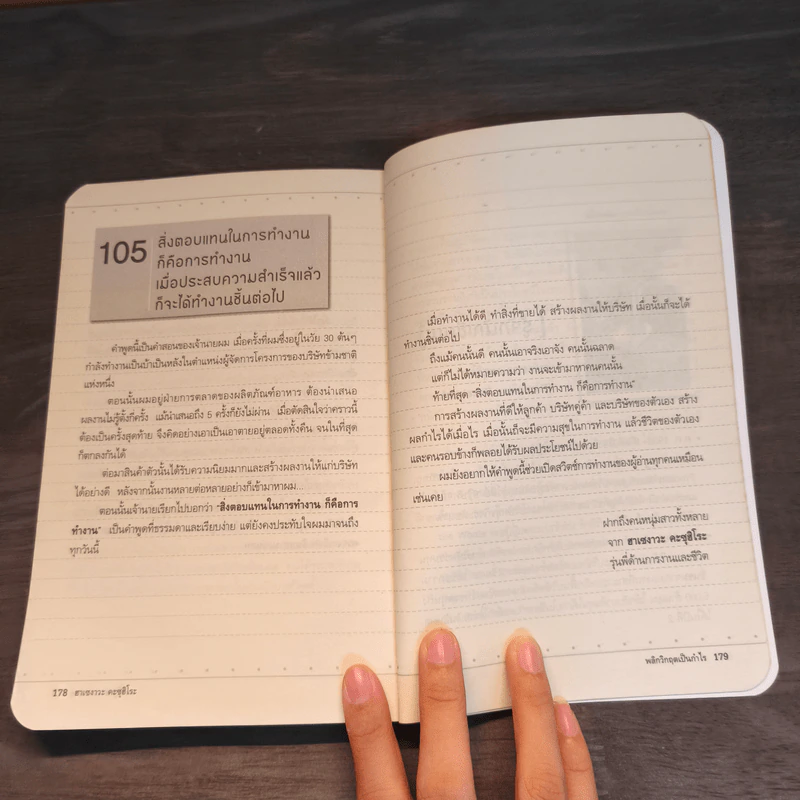 105
สิ่งตอบแทนในการทำงาน
ก็คือการทำงาน
เมื่อประสบความสำเร็จแล้ว
ก็จะได้ทำงานชิ้นต่อไป
คำพูดนี้เป็นคำสอนของเจ้านายผม เมื่อครั้งที่ผมซึ่งอยู่ในวัย 30 ต้นๆ
กำลังทำงานเป็นบ้าเป็นหลังในตำแหน่งผู้จัดการโครงการของบริษัทข้ามชาติ
แห่งหนึ่ง
ตอนนั้นผมอยู่ฝ่ายการตลาดของผลิตภัณฑ์อาหาร ต้องนำเสนอ
ผลงานไม่รู้ตั้งกี่ครั้ง แม้นำเสนอถึง 5 ครั้งก็ยังไม่ผ่าน เมื่อตัดสินใจว่าคราวนี้
ต้องเป็นครั้งสุดท้าย จึงคิดอย่างเอาเป็นเอาตายอยู่ตลอดทั้งคืน จนในที่สุด
ก็ตกลงกันได้
ต่อมาสินค้าตัวนั้นได้รับความนิยมมากและสร้างผลงานให้แก่บริษัท
ได้อย่างดี หลังจากนั้นงานหลายต่อหลายอย่างก็เข้ามาหาผม...
ตอนนั้นเจ้านายเรียกไปบอกว่า “สิ่งตอบแทนในการทำงาน ก็คือการ
ทำงาน” เป็นคำพูดที่ธรรมดาและเรียบง่าย แต่ยังคงประทับใจผมมาจนถึง
ทุกวันนี้
178 ฮาเซงาวะ คะซุฮิโระ
เมื่อทำงานได้ดี ทำสิ่งที่ขายได้ สร้างผลงานให้บริษัท เมื่อนั้นก็จะได้
ทำงานชิ้นต่อไป
ถึงแม้คนนั้นดี คนนั้นเอาจริงเอาจัง คนนั้นฉลาด
แต่ก็ไม่ได้หมายความว่า งานจะเข้ามาหาคนคนนั้น
ท้ายที่สุด “สิ่งตอบแทนในการทำงาน ก็คือการทำงาน”
การสร้างผลงานที่ดีให้ลูกค้า บริษัทคู่ค้า และบริษัทของตัวเอง สร้าง
ผลกำไรได้เมื่อไร เมื่อนั้นก็จะมีความสุขในการทำงาน แล้วชีวิตของตัวเอง
และคนรอบข้างก็พลอยได้รับผลประโยชน์ไปด้วย
ผมยังอยากให้คำพูดนี้ช่วยเปิดสวิตช์การทำงานของผู้อ่านทุกคนเหมือน
เช่นเคย
ฝากถึงคนหนุ่มสาวทั้งหลาย
จาก ฮาเซงาวะ คะซุฮิโระ
รุ่นพี่ด้านการงานและชีวิต
พลิกวิกฤตเป็นกำไร 179